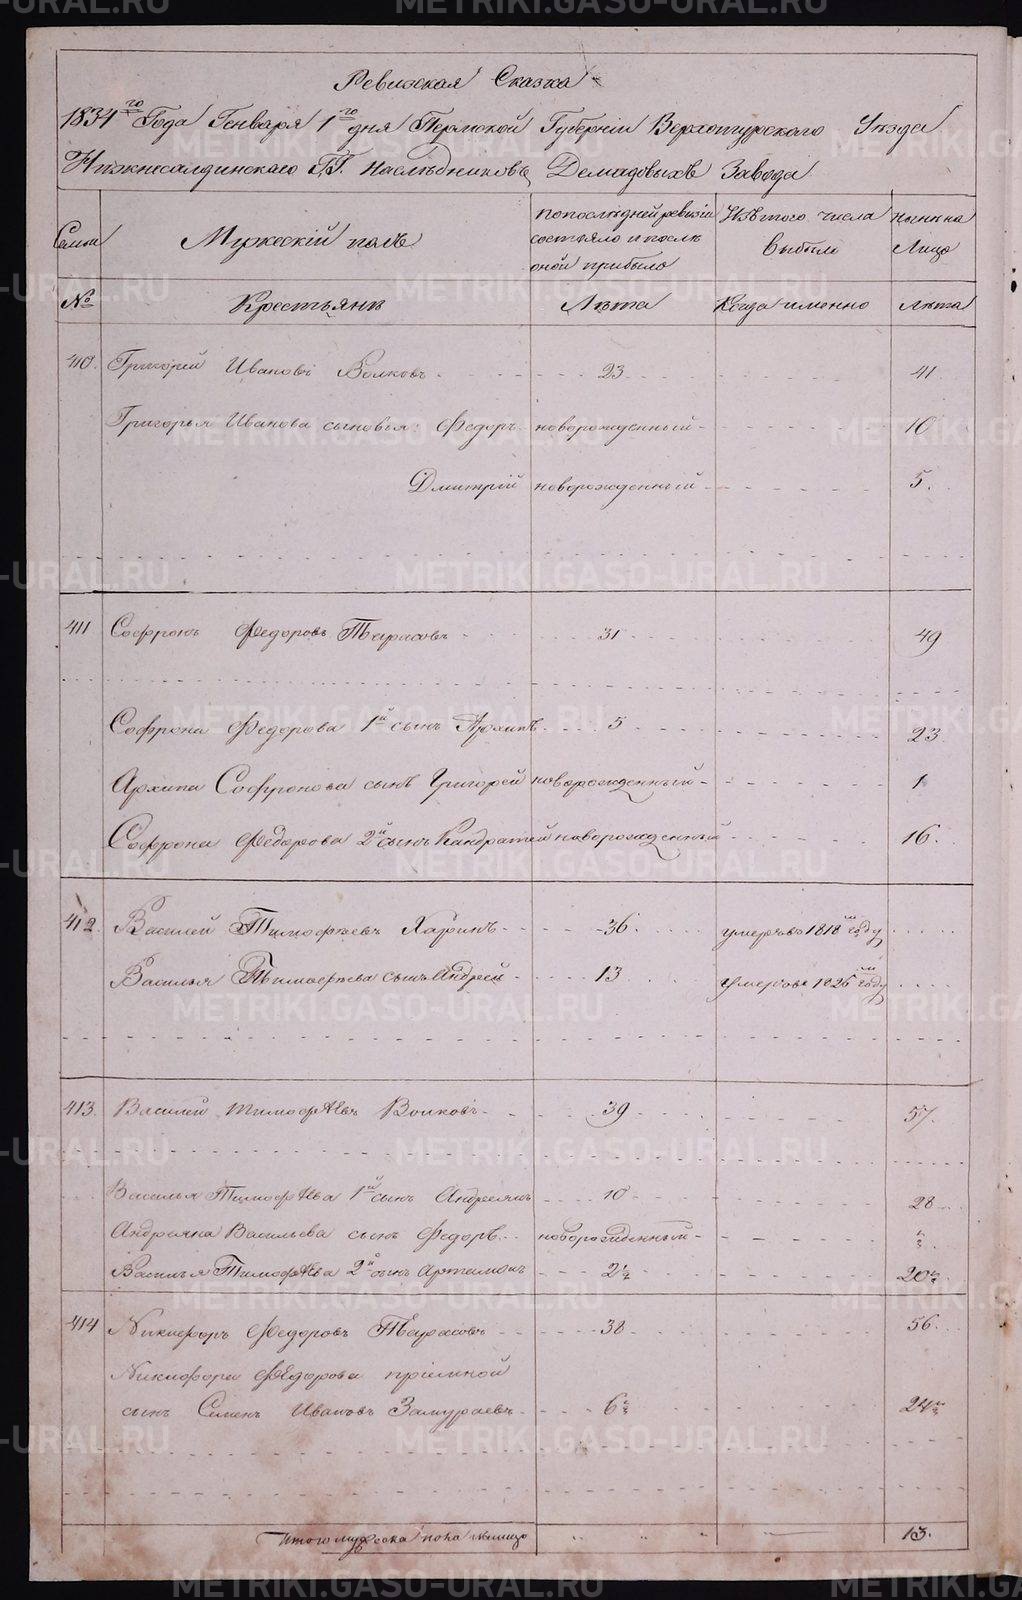 Ревизская Сказка
1834го Года Генваря 1го дня Пермской Губернiи Верхотурскаго Уезда
Нижнесалдинскаго Г.Г. Наследниковъ Демидовыхъ Завода
Семьи Мужескiй полъ По последней ревизiи состояло и после оной прибыло Изъ того числа выбыло Ныне на Лицо
№ Крестьяне Лета Когда именно Лета
410. Григорей Ивановъ Волковъ 23 41
Григорья Иванова сыновья: Федоръ новорожденный 10
Дмитрiй новорожденный 5.
411 Софронъ Федоровъ Тарасовъ 31 49
Софрона Федорова 1й сынъ Архипъ 5 23
Архипа Софронова сынъ Григорей новорожденный 1
Софрона Федорова 2й сынъ Кандратей новорожденный 16.
412. Василей Тимофеевъ Харинъ 36 умеръ въ 1818м году
Василья Тимофеева сынъ Андрей 13 умеръ въ 1826м году
413. Василей Тимофеевъ Волковъ 39 57.
Василья Тимофеева 1й сынъ Андреянъ 10 28
Андреяна Васильева сынъ Федоръ новорожденный ½
Василья Тимофеева 2й сынъ Артамонъ 2½ 20½
414 Никифоръ Федоровъ Тарасовъ 38 56.
Никифора Федорова прiемной
сынъ Семенъ Ивановъ Замураевъ 6½ 24½
Итого мужеска пола налицо 13.
METRIKI.GASO-URAL.RU